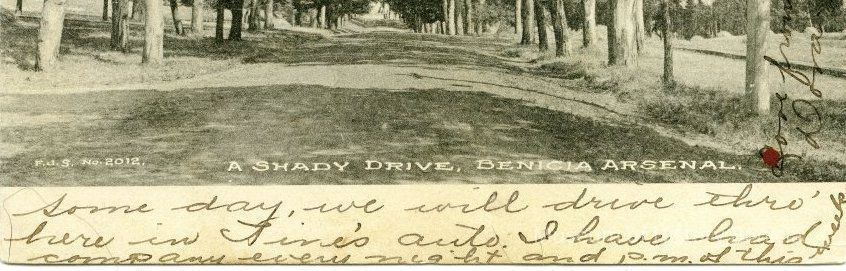 Love from
Dora
F.J.S. No. 2012.
A SHADY DRIVE, BENICIA ARSENAL.
some day, we will drive thro'
here in Tine's auto. I have had
company every night and p.m. of this
week